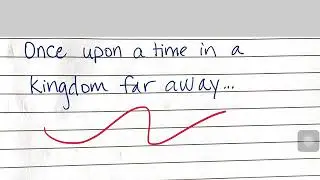 Once upon a time in a
kingdom far away...